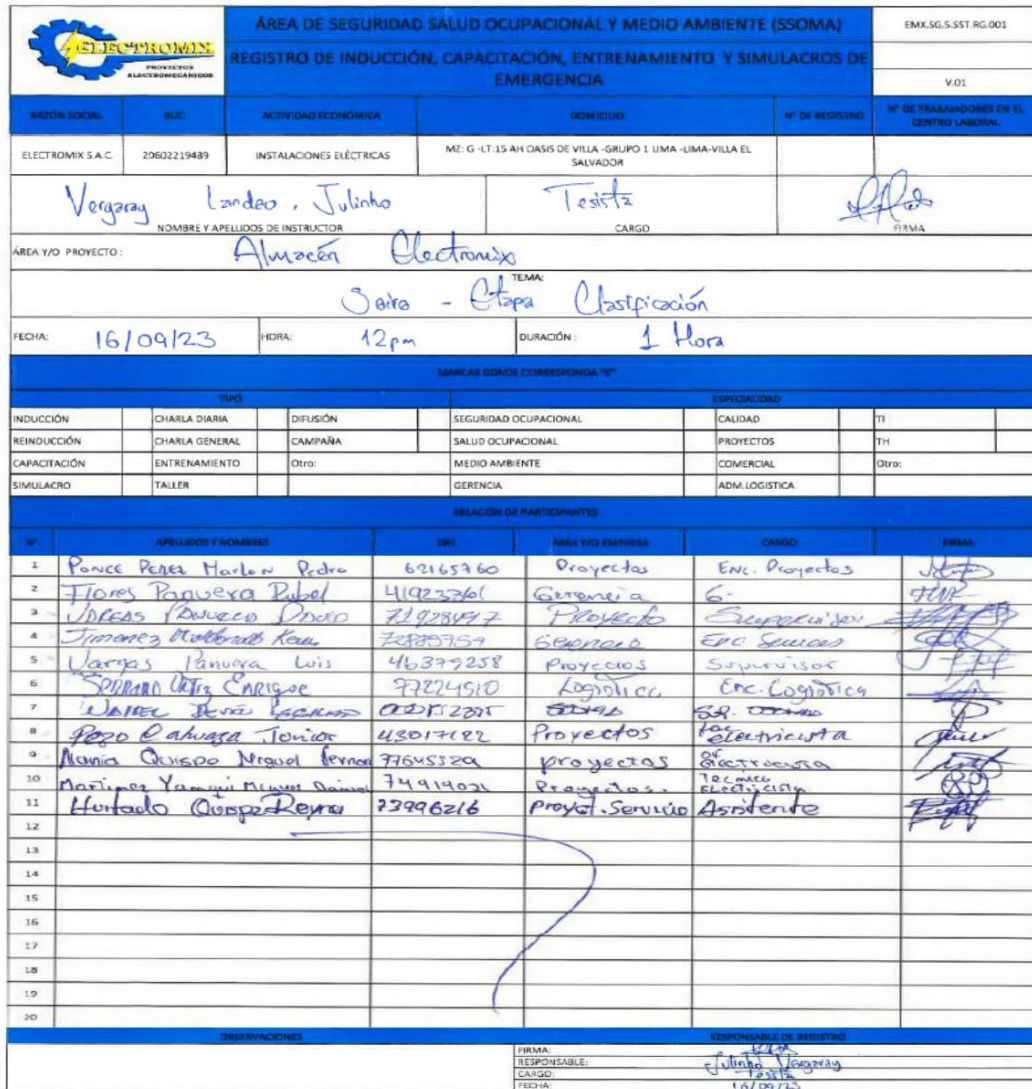 ELECTROMIX
PROYECTOS
ELECTROMECÁNICOS
ÁREA DE SEGURIDAD SALUD OCUPACIONAL Y MEDIO AMBIENTE (SSOMA)
EMX.SG.S.SST.RG.001
REGISTRO DE INDUCCIÓN, CAPACITACIÓN, ENTRENAMIENTO Y SIMULACROS DE EMERGENCIA
V.01
RAZÓN SOCIAL RUC ACTIVIDAD ECONÓMICA DOMICILIO N° DE REGISTRO N° DE TRABAJADORES EN EL CENTRO LABORAL
ELECTROMIX S.A.C. 20602219489 INSTALACIONES ELÉCTRICAS MZ: G -LT:15 AH OASIS DE VILLA -GRUPO 1 LIMA -LIMA-VILLA EL SALVADOR
Vergaray Landeo, Julinho Tesista
NOMBRE Y APELLIDOS DE INSTRUCTOR CARGO FIRMA
ÁREA Y/O PROYECTO: Almacén Electromix
TEMA:
Seiro - Etapa Clasificación
FECHA: 16/09/23 HORA: 12pm DURACIÓN: 1 Hora
MARCAR DONDE CORRESPONDA "X"
TIPO ESPECIALIDAD
INDUCCIÓN CHARLA DIARIA DIFUSIÓN SEGURIDAD OCUPACIONAL CALIDAD TI
REINDUCCIÓN CHARLA GENERAL CAMPAÑA SALUD OCUPACIONAL PROYECTOS TH
CAPACITACIÓN ENTRENAMIENTO Otro: MEDIO AMBIENTE COMERCIAL Otro:
SIMULACRO TALLER GERENCIA ADM.LOGISTICA
RELACIÓN DE PARTICIPANTES
N° APELLIDOS Y NOMBRES DNI ÁREA Y/O EMPRESA CARGO FIRMA
1 Ponce Perez Marlon Pedro 62165760 Proyectos Enc. Proyectos
2 Flores Panuera Rubel Gerencia G.
3 David Proyecto Supervisor
4 Jimenez
5 Vargas Panuera Luis 46379258 Proyectos Supervisor
6 Serrano Ortiz Enrique 77224510 Logistica Enc. Logistica
7
8 Pozo Cahuaza Junior 43017122 Proyectos tec electricista
9 Quispe Miguel 77645329 proyectos electricista
10 Martinez Yamqui Daniel Proyectos. Tecnico Electricista
11 Hurtado Quispe Reyna 73996216 Proyect.Servicio Asistente
12
13
14
15
16
17
18
19
20
OBSERVACIONES RESPONSABLE DE REGISTRO
FIRMA:
RESPONSABLE: Julinho Vergaray
CARGO: Tesista
FECHA: 16/09/23